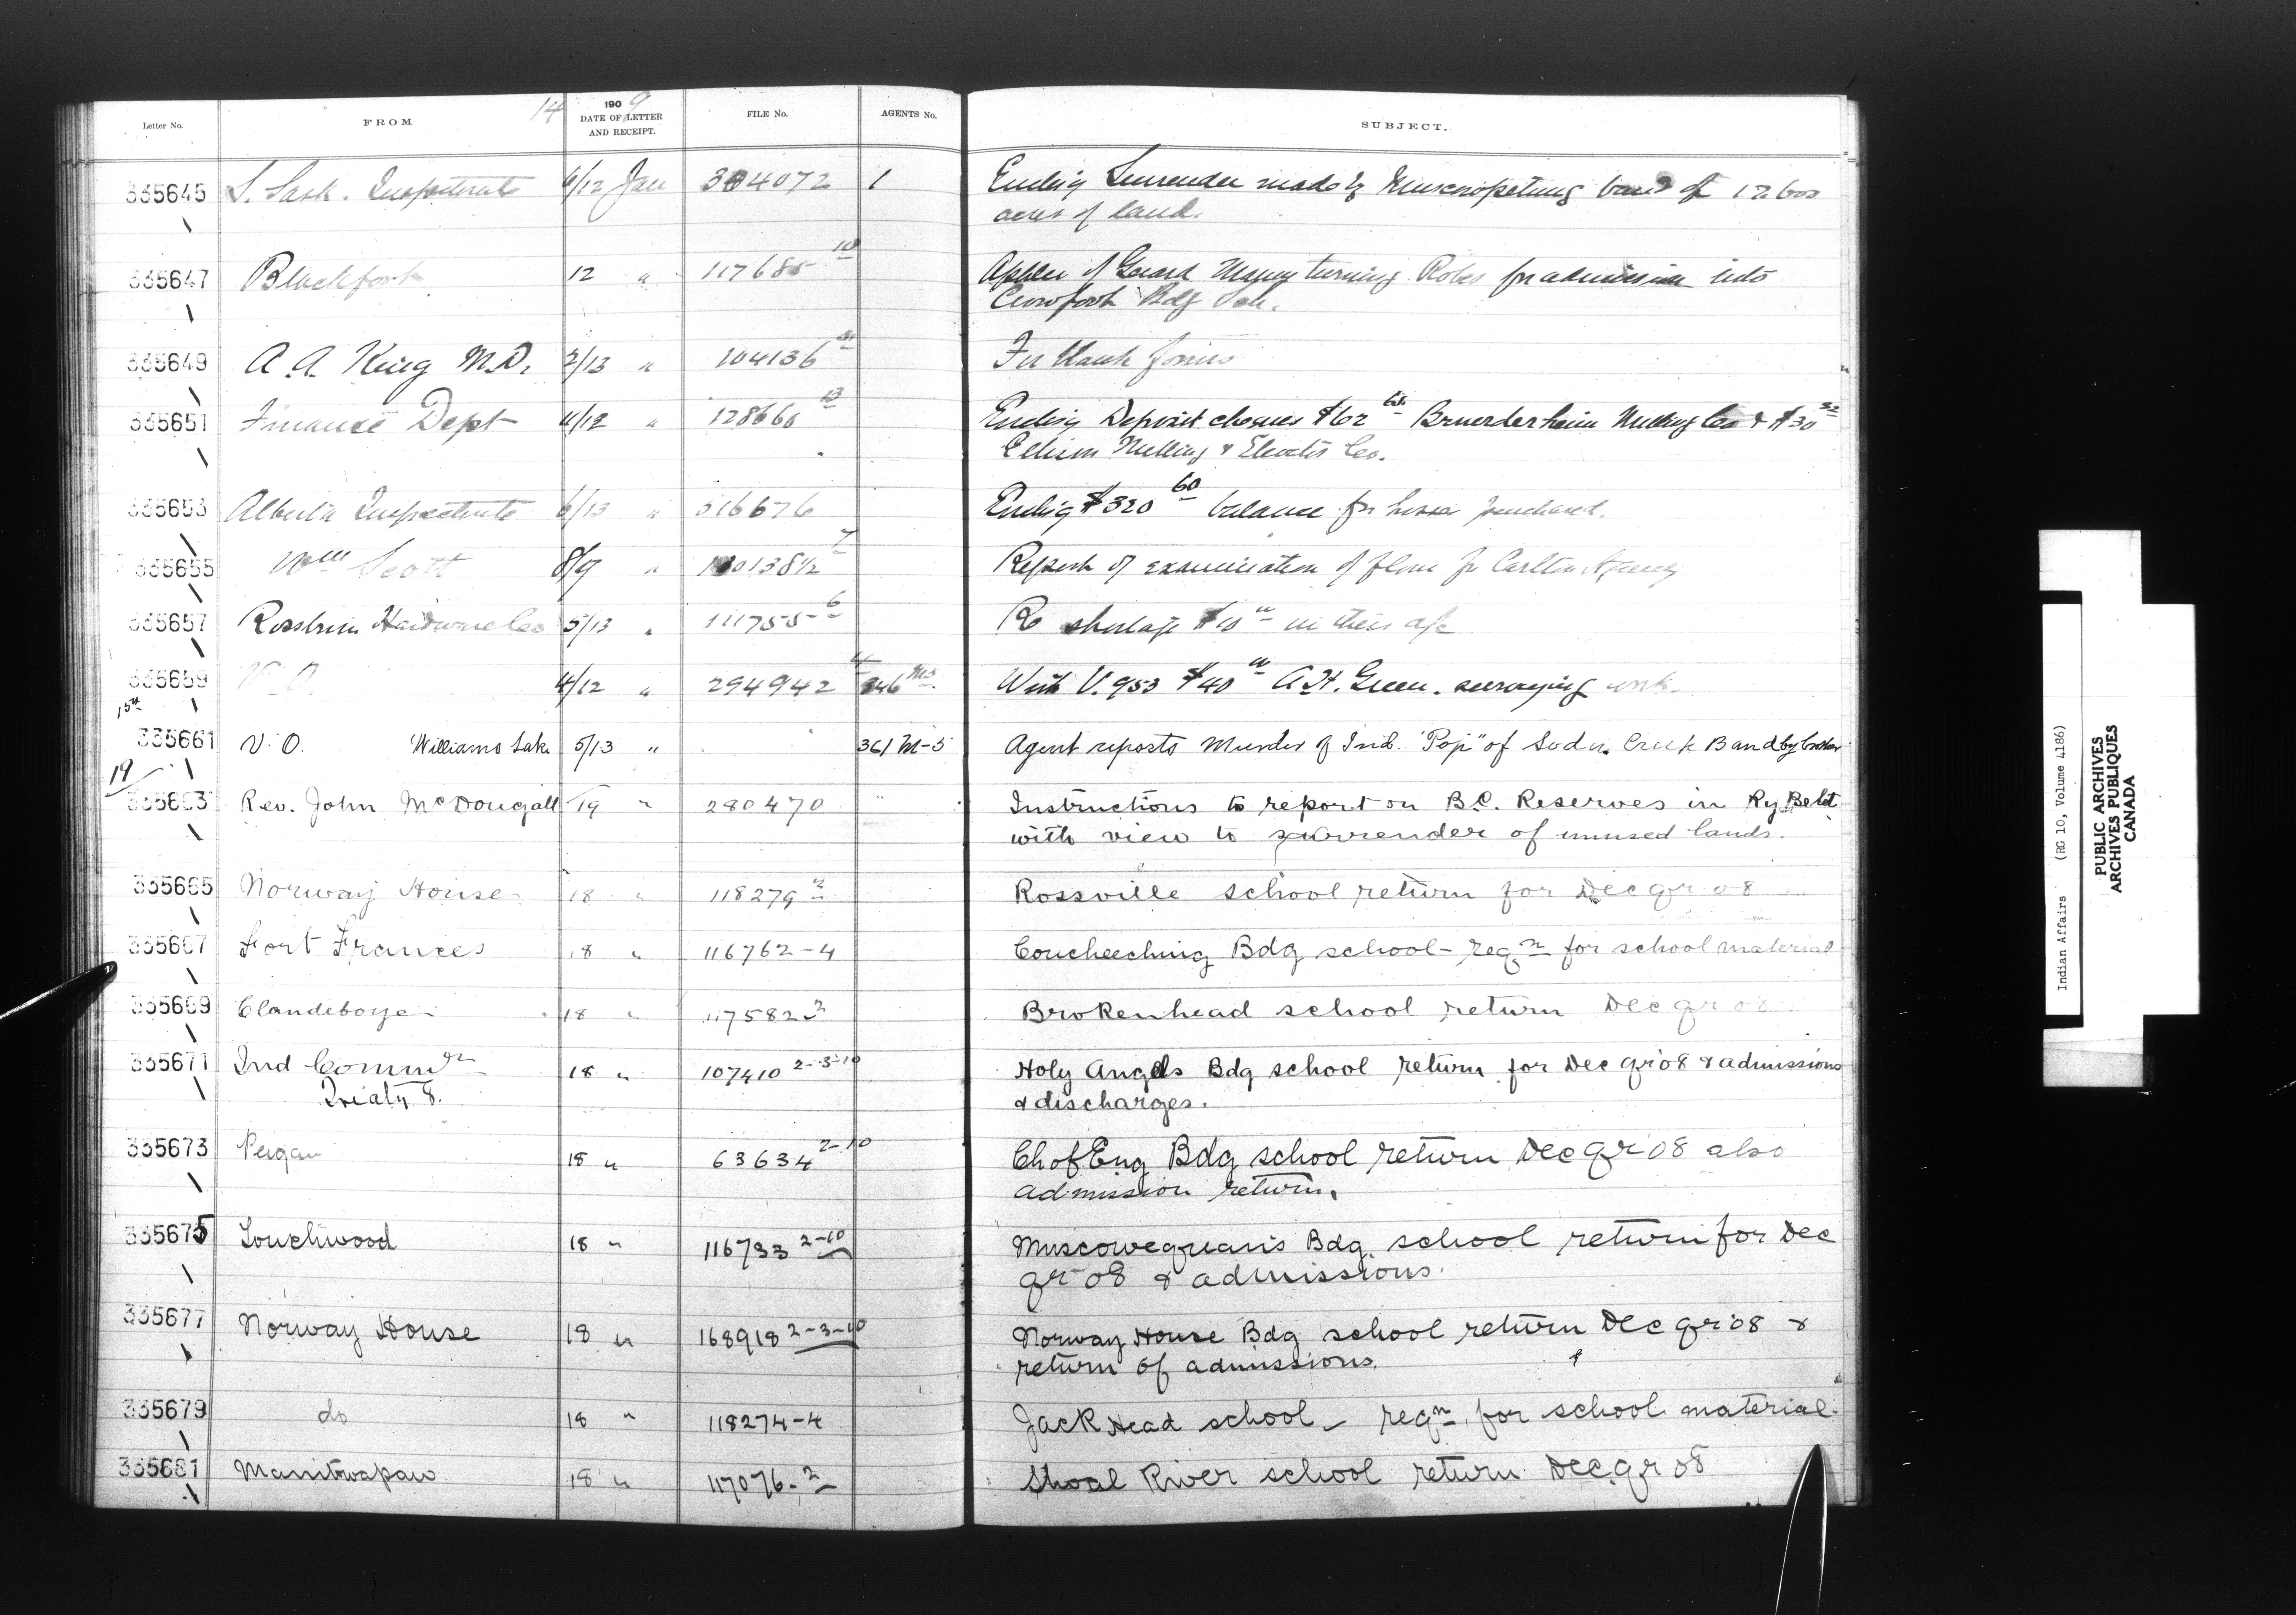 14
Letter No. FROM 1909 DATE OF LETTER AND RECEIPT. FILE No. AGENTS No. SUBJECT.
335645 S. Sask. Inspectorate 6/12 Jan 304072 1 Encling Surrender made by Muscowpetung band of
acres of land.
335647 Blackfoot 12 " 117685-10 Applen of Gerard Many turning Robes for admission into
Crowfoot Bdg Sch.
335649 A. A. King M.D. 2/13 " 104136 For blank forms
335651 Finance Dept 4/12 " 128660 13 Encling Deposit cheques $62 Bruerderheim Milling Co & $30
Ellison Milling & Elevator Co.
335653 Alberta Inspectorate 6/13 " 316676 Encling $320 60 balance for purchased.
335655 Wm Scott 8/9 " 7 Report of examination of flour for Carlton Agency
335657 Hardware Co 5/13 " 111755-6 Re shortage in their a/c
335659 V. O. 4/12 " 294942 4 346 M5 With V. 953 $40 A. H. Green. surveying work.
15th
335661 V. O. Williams Lake 5/13 " 361 M-5 Agent reports Murder of Ind. "Pop" of Soda Creek Band by brother
19
335663 Rev. John McDougall 19 " 280470 Instructions to report on B.C. Reserves in Ry Belt
with view to surrender of unused lands.
335665 Norway House 18 " 118279 2 Rossville school return for Dec qr 08
335667 Fort Frances 18 " 116762-4 Coucheeching Bdg school - reqn for school material
335669 Clandeboye 18 " 117582-2 Brokenhead school return Dec qr 08
335671 Ind Commr 18 " 107410 2-3-10 Holy Angels Bdg school return for Dec qr 08 & admissions
Treaty 8. & discharges.
335673 Peigan 18 " 63634 2-10 Ch of Eng Bdg school return Dec qr 08 also
admission return.
335675 Touchwood 18 " 116733 2-10 Muscowequan's Bdg. school return for Dec
qr 08 & admissions.
335677 Norway House 18 " 168918 2-3-10 Norway House Bdg school return Dec qr 08 &
return of admissions.
335679 do 18 " 118274-4 Jack Head school - reqn for school material.
335681 Manitwapaw 18 " 117076-2 Shoal River school return Dec qr 08
Indian Affairs (RG 10, Volume 4186)
PUBLIC ARCHIVES
ARCHIVES PUBLIQUES
CANADA